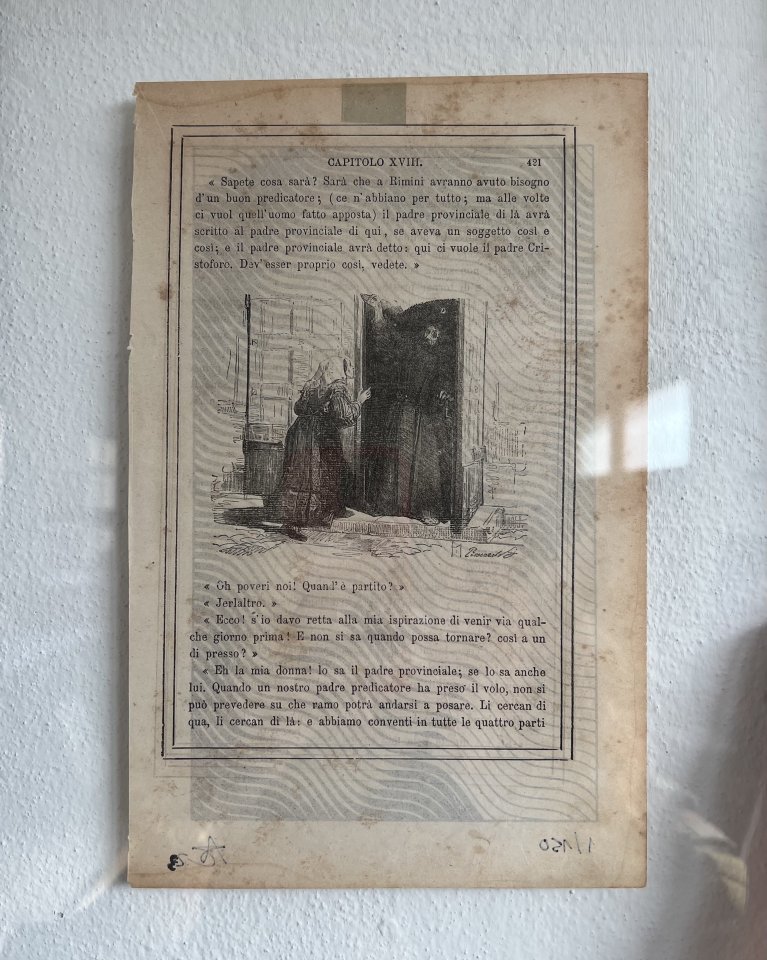 CAPITOLO XVIII. 421
« Sapete cosa sarà? Sarà che a Rimini avranno avuto bisogno
d'un buon predicatore; (ce n'abbiano per tutto; ma alle volte
ci vuol quell'uomo fatto apposta) il padre provinciale di là avrà
scritto al padre provinciale di qui, se aveva un soggetto così e
così; e il padre provinciale avrà detto: qui ci vuole il padre Cri-
stoforo. Dev'esser proprio così, vedete. »
« Oh poveri noi! Quand'è partito? »
« Jerlaltro. »
« Ecco! s'io davo retta alla mia ispirazione di venir via qual-
che giorno prima! E non si sa quando possa tornare? così a un
di presso? »
« Eh la mia donna! lo sa il padre provinciale; se lo sa anche
lui. Quando un nostro padre predicatore ha preso il volo, non si
può prevedere su che ramo potrà andarsi a posare. Li cercan di
qua, li cercan di là: e abbiamo conventi in tutte le quattro parti
1/150